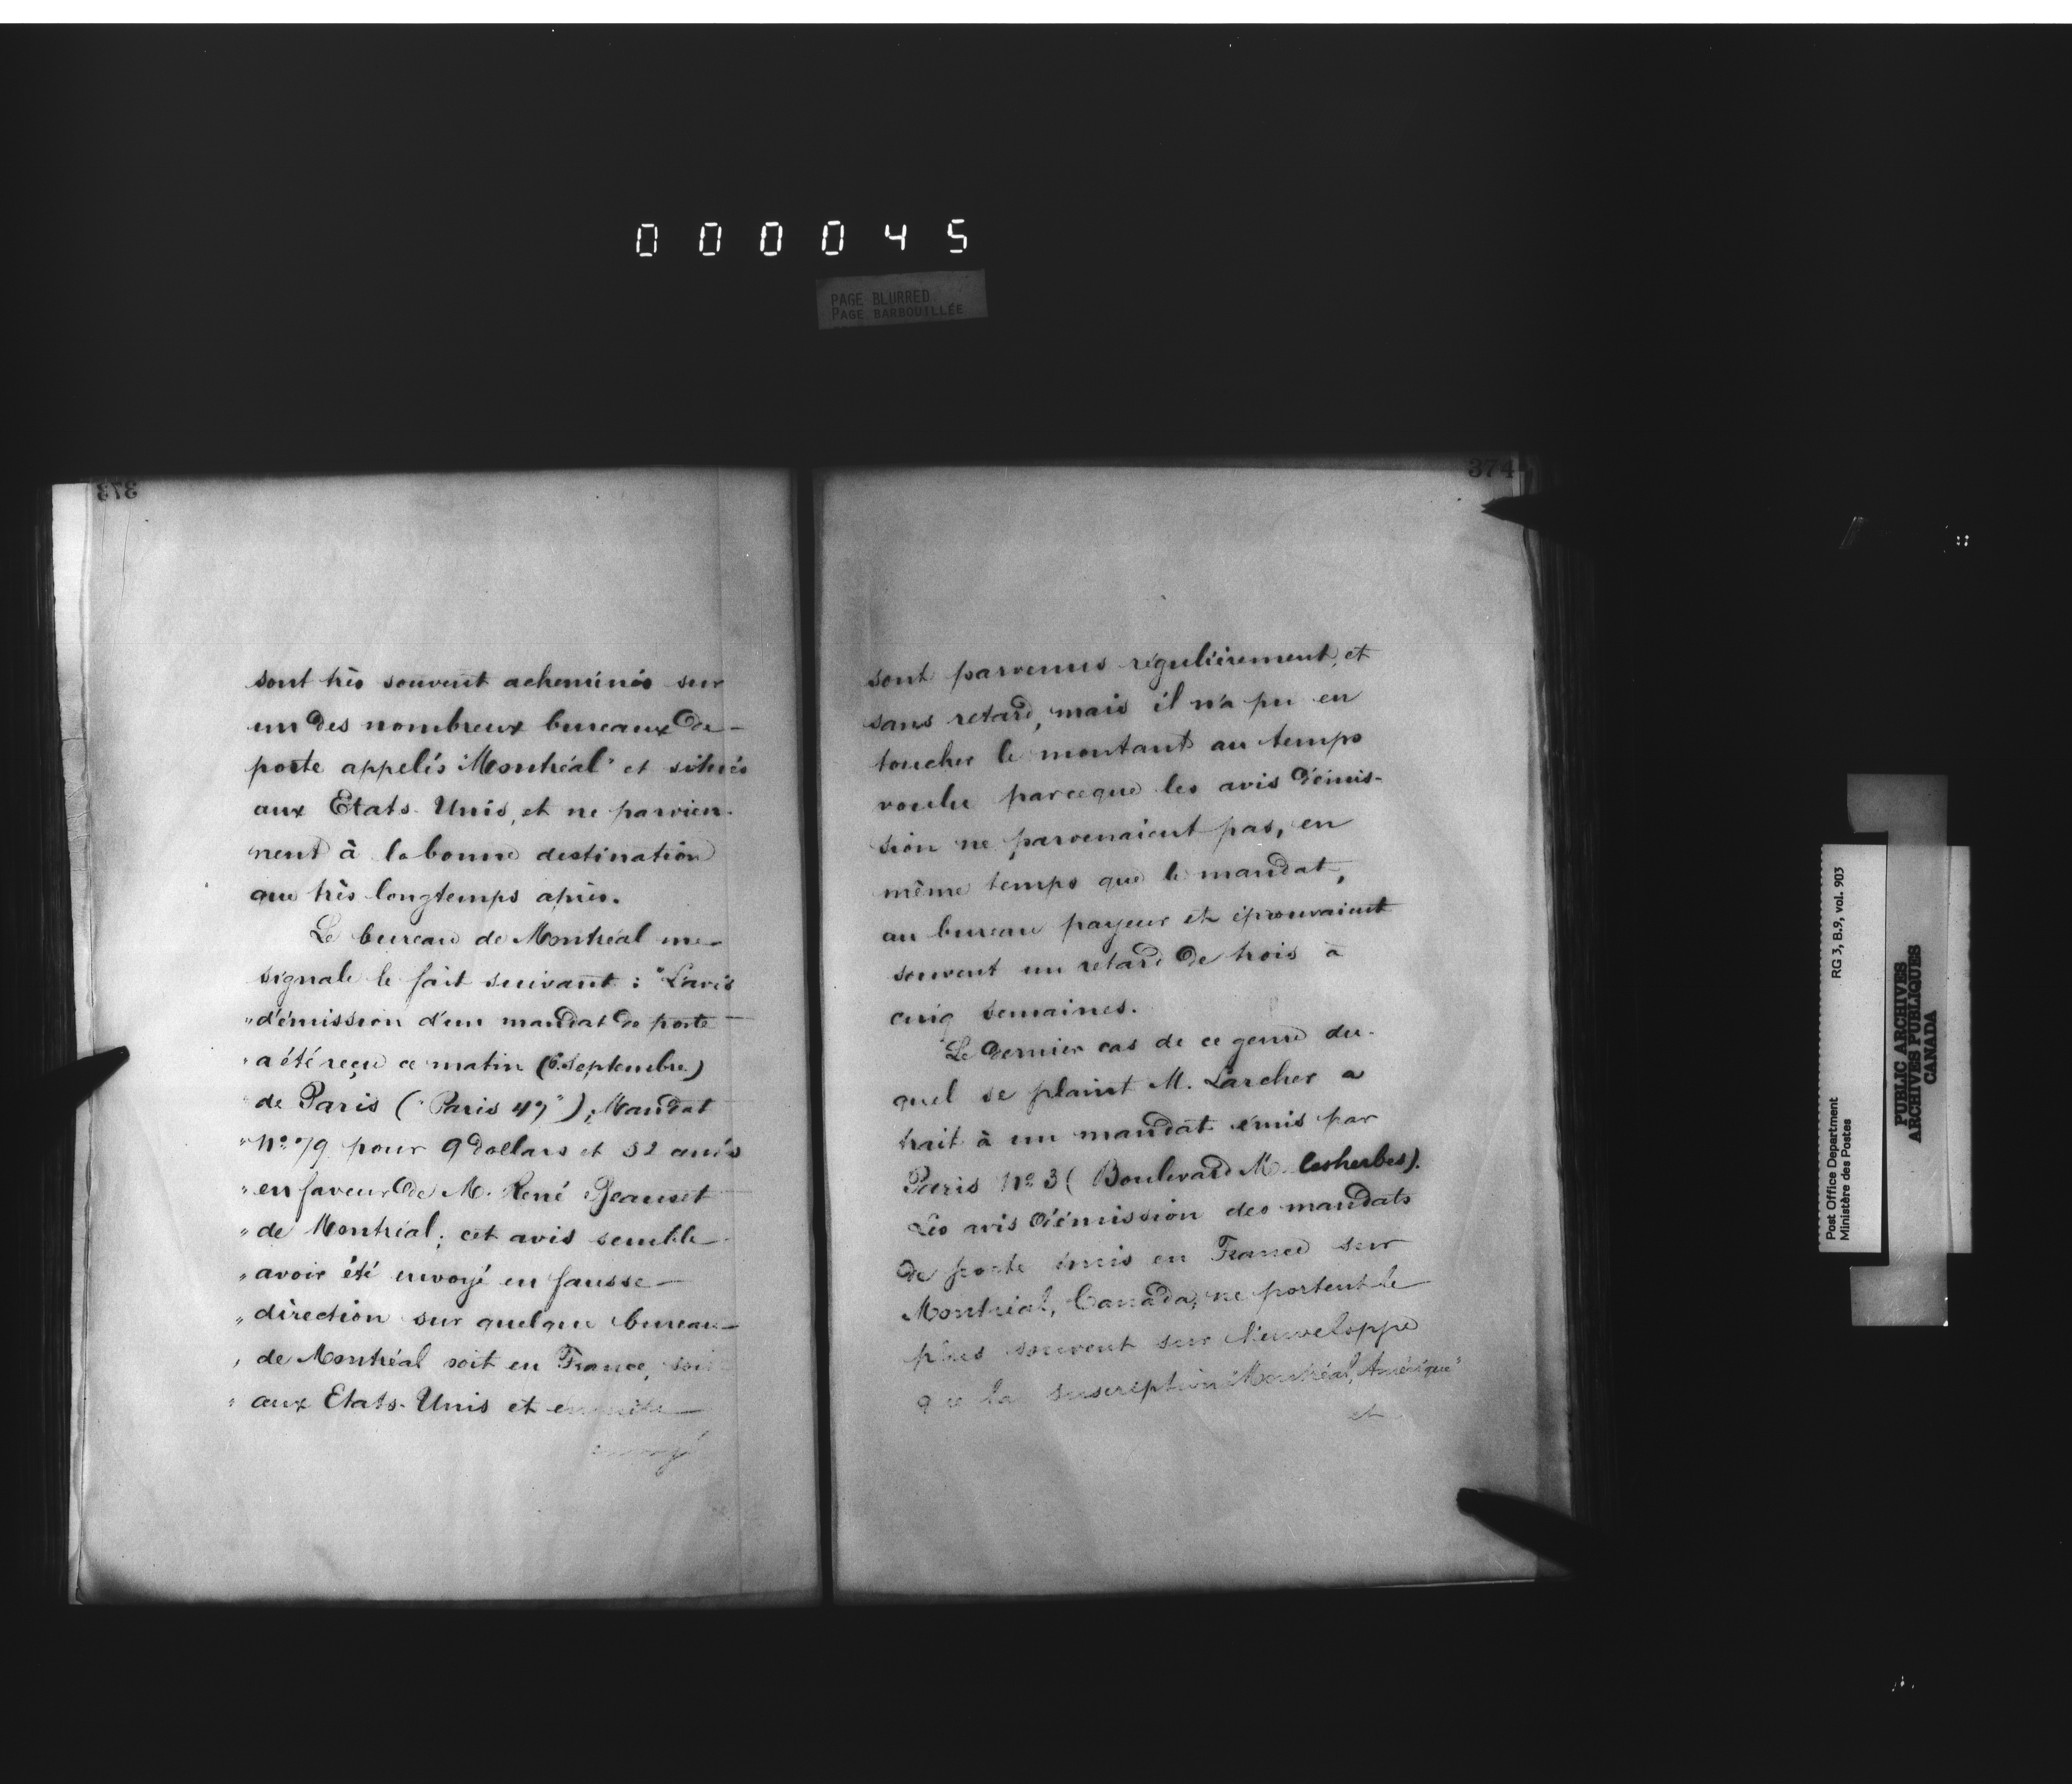 000045
PAGE BLURRED
PAGE BARBOUILLÉE
373
sont très souvent acheminés sur
un des nombreux bureaux de
poste appelés "Montréal" et situés
aux Etats-Unis, et ne parvien-
nent à la bonne destination
que très longtemps après.
Le bureau de Montréal me
signale le fait suivant : "L'avis
"d'émission d'un mandat de poste
"a été reçu ce matin (6 Septembre)
"de Paris ("Paris 47"), Mandat
"No 79 pour 9 dollars et 52 cents
"en faveur de M. René
"de Montréal; cet avis semble
"avoir été envoyé en fausse
"direction sur quelque bureau
"de Montréal soit en France, soit
"aux Etats-Unis et ensuite
envoyé
374
sont parvenus régulièrement, et
sans retard, mais il n'a pu en
toucher le montant au temps
voulu parceque les avis d'émis-
sion ne parvenaient pas, en
même temps que le mandat,
au bureau payeur et éprouvaient
souvent un retard de trois à
cinq semaines.
Le dernier cas de ce genre du-
quel se plaint M. Larcher a
trait à un mandat émis par
Paris No 3 (Boulevard Malesherbes).
Les avis d'émission des mandats
de poste émis en France sur
Montréal, Canada, ne portent le
plus souvent sur l'enveloppe
que la suscription "Montréal, Amérique"
et
Post Office Department RG 3, B.9, vol. 903
Ministère des Postes
PUBLIC ARCHIVES
ARCHIVES PUBLIQUES
CANADA